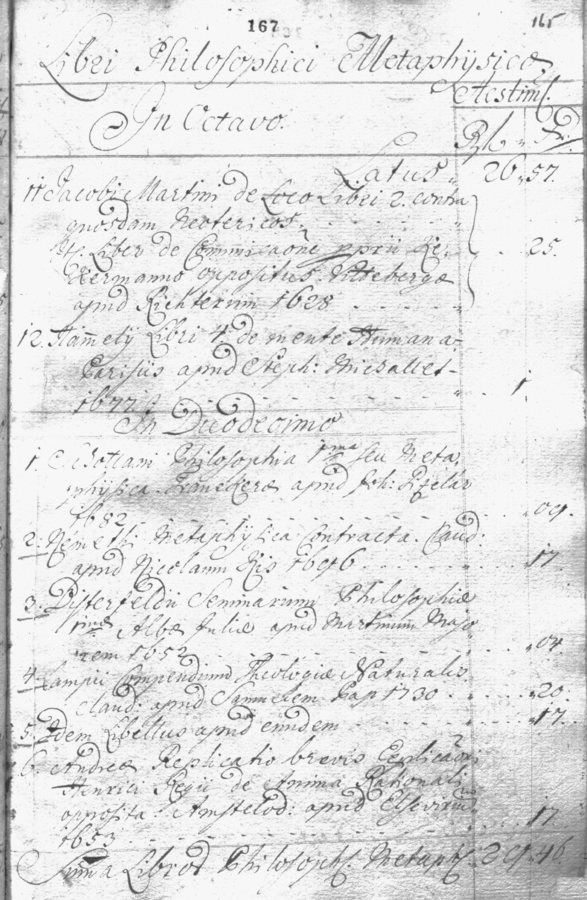 167
165
Libri Philosophici Metaphysico
Aestim.
In Octavo.
Rfl. Df.
Latus 26 57.
11 Jacobi Martini de Loco Libri 2. contra
quosdam Neotericos
It. Liber de Communione pprii Ke-
kermanno oppositus Vitebergæ 25.
apud Richterum 1628
12. Hamely Libri 4 de mente Humana
Parisiis apud Steph: Michallet
1677 1.
In Duodecimo
1. Philosophia pma seu Meta,
physica. Franeckeræ apud Joh:
1682 09.
2. Metaphysica Contracta. Claud:
apud Nicolaum Kis 1696 17
3. Bisterfeldii Seminarium Philosophiæ
Albæ Juliæ apud Martinum Majo
rem 1652 04
4. Lampii Compendium Theologiæ Naturalis
Claud: apud Samuelem Pap 1730 20
5. Idem Libellus apud eundem 17.
6. Andreæ Replicatio brevis
Henrici Regii de Anima Rationali
opposita: Amstelod: apud Elsevirium
1653 17
Suma Libror Philosoph. Metaph. 29 46